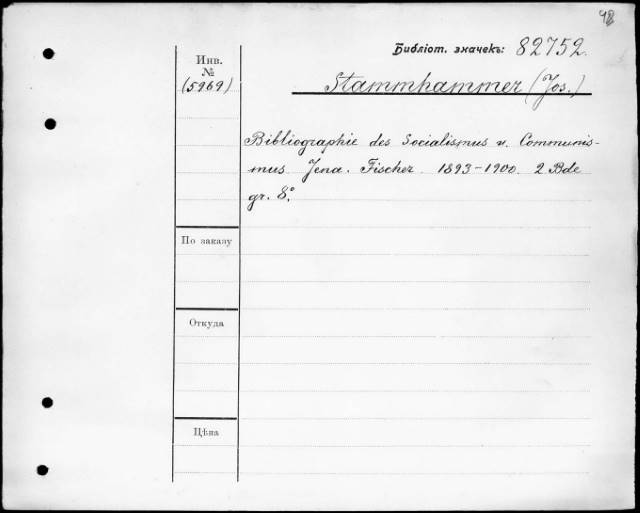 42
Библіот. значекъ: 82752.
Инв.
№
(5969)
Stammhammer (Jos.)
Bibliographie des Socialismus u. Communis-
mus. Jena. Fischer. 1893-1900. 2 Bde
gr. 8°.
По заказу
Откуда
Цѣна